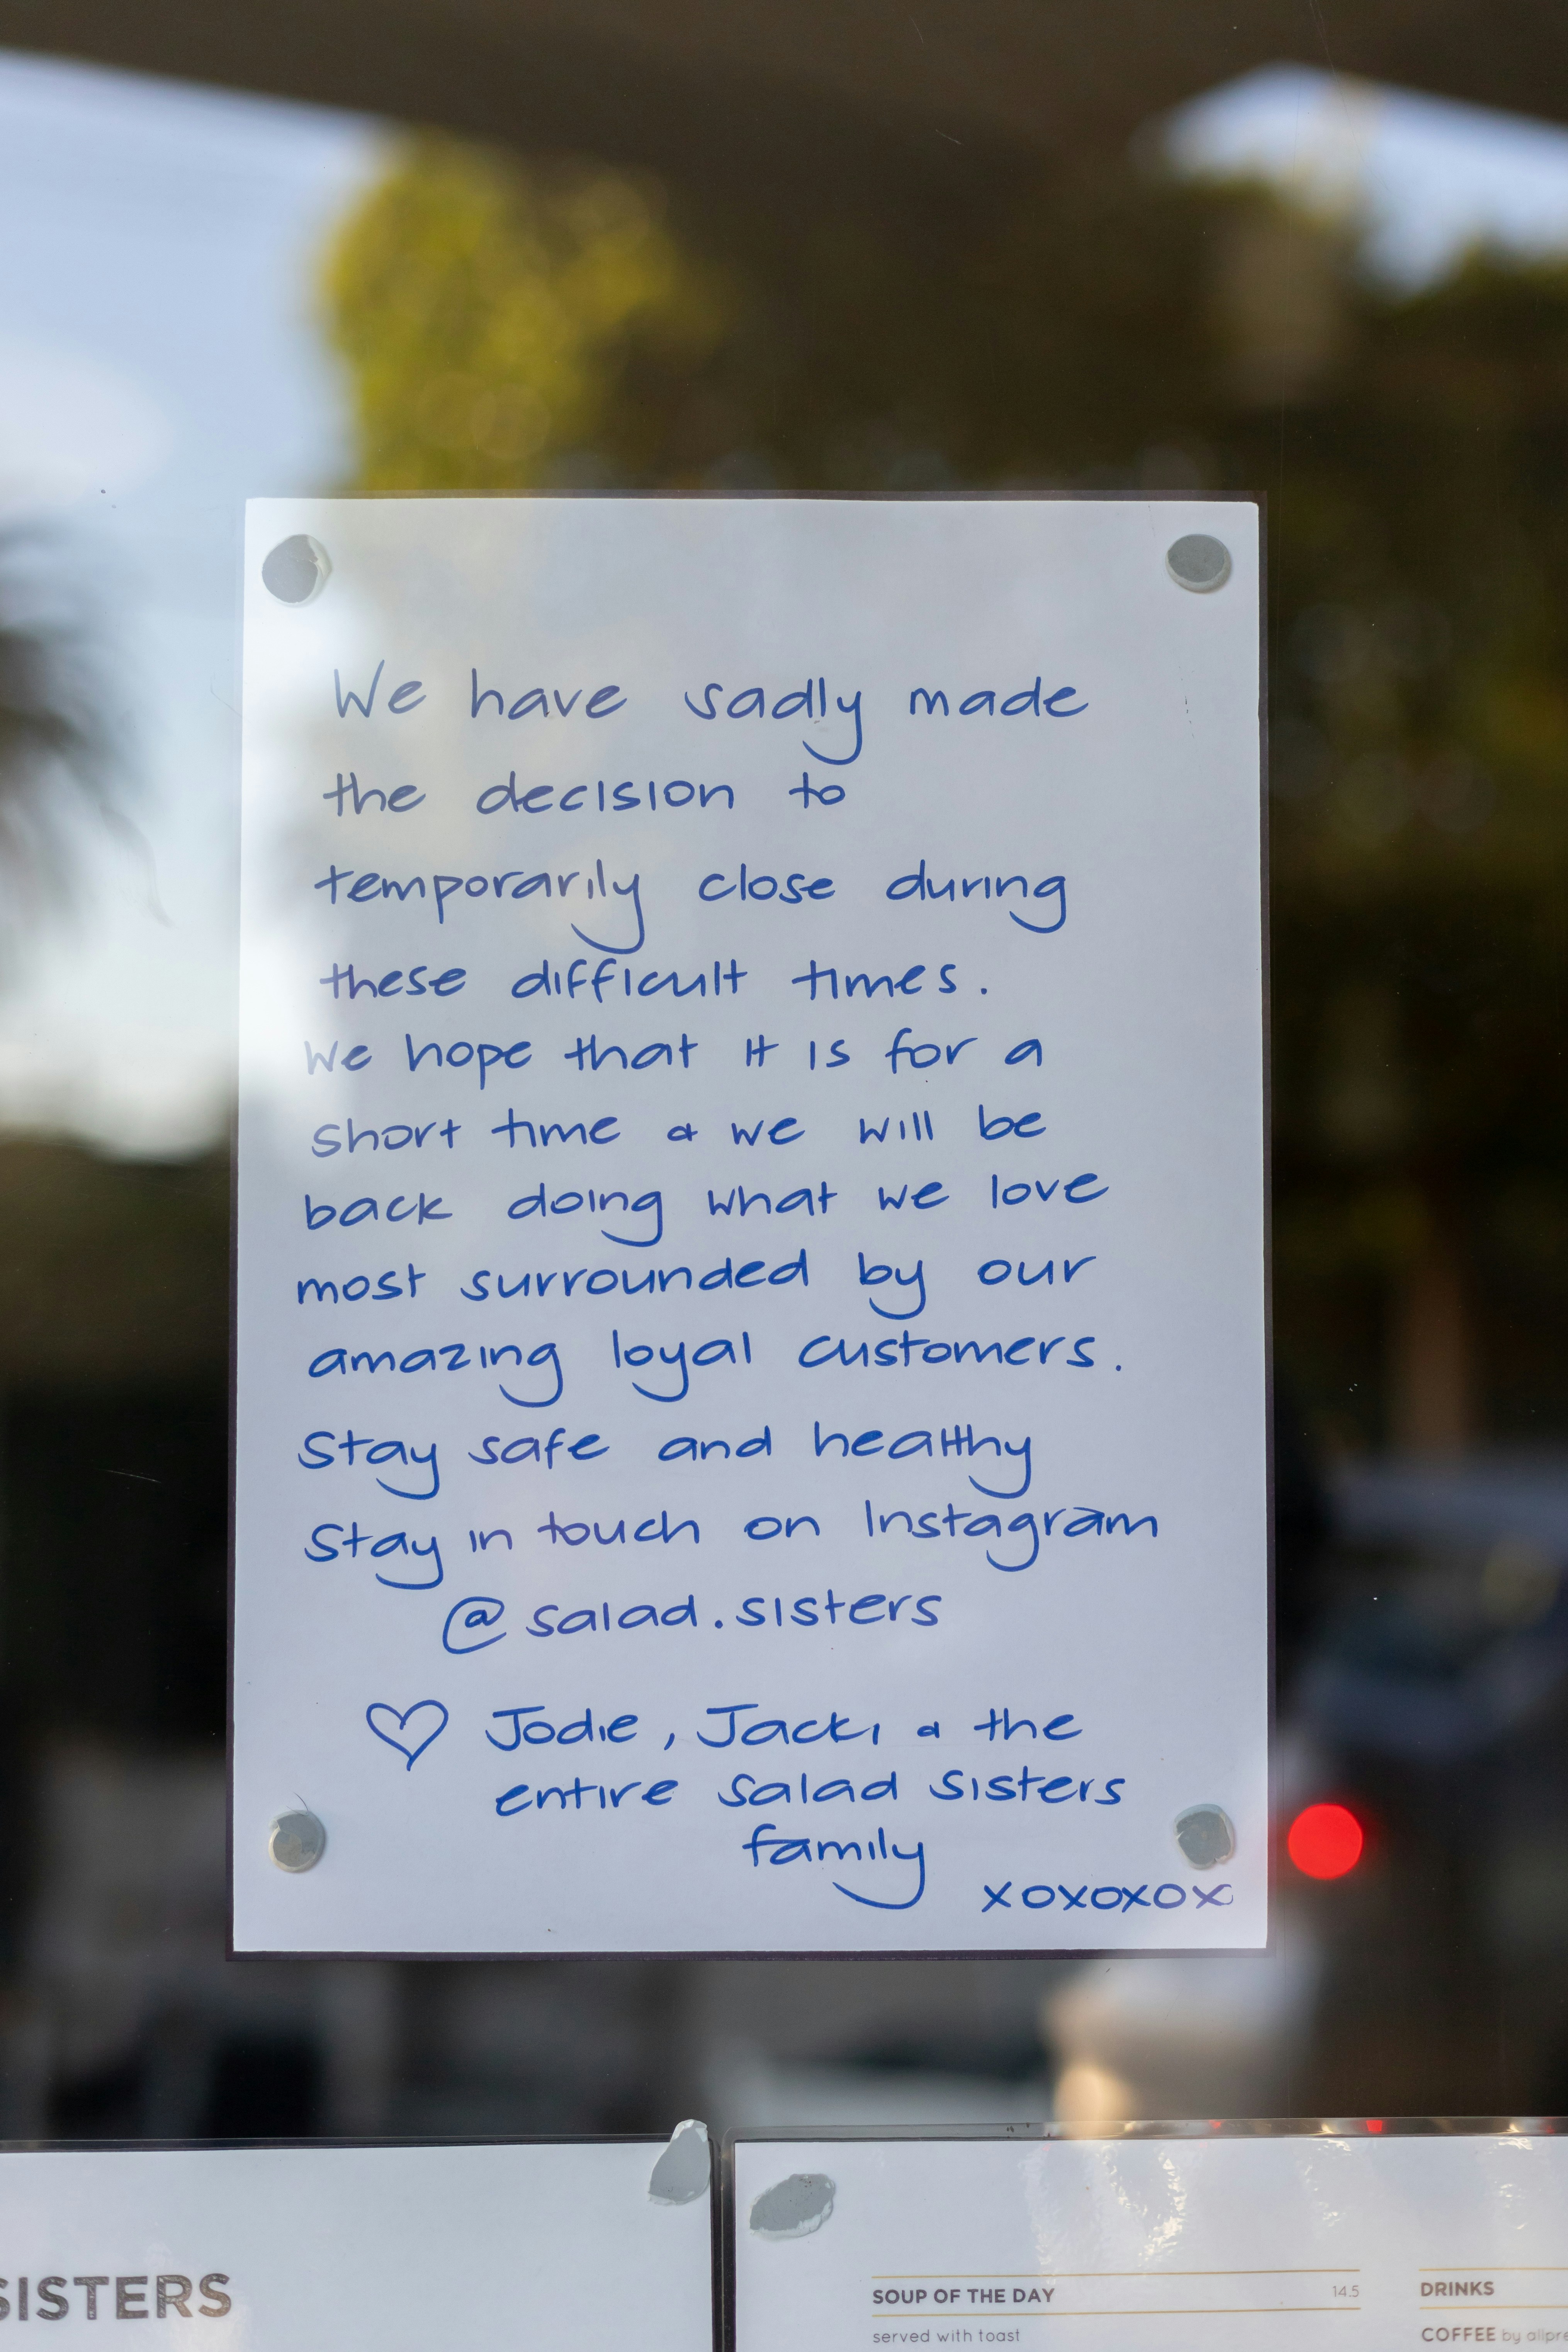 We have sadly made
the decision to
temporarily close during
these difficult times.
We hope that it is for a
short time & we will be
back doing what we love
most surrounded by our
amazing loyal customers.
Stay safe and healthy
Stay in touch on Instagram
@salad.sisters
♡ Jodie, Jacki & the
entire Salad Sisters
family
xoxoxox
SISTERS
SOUP OF THE DAY 14.5
served with toast
DRINKS
COFFEE by allpr